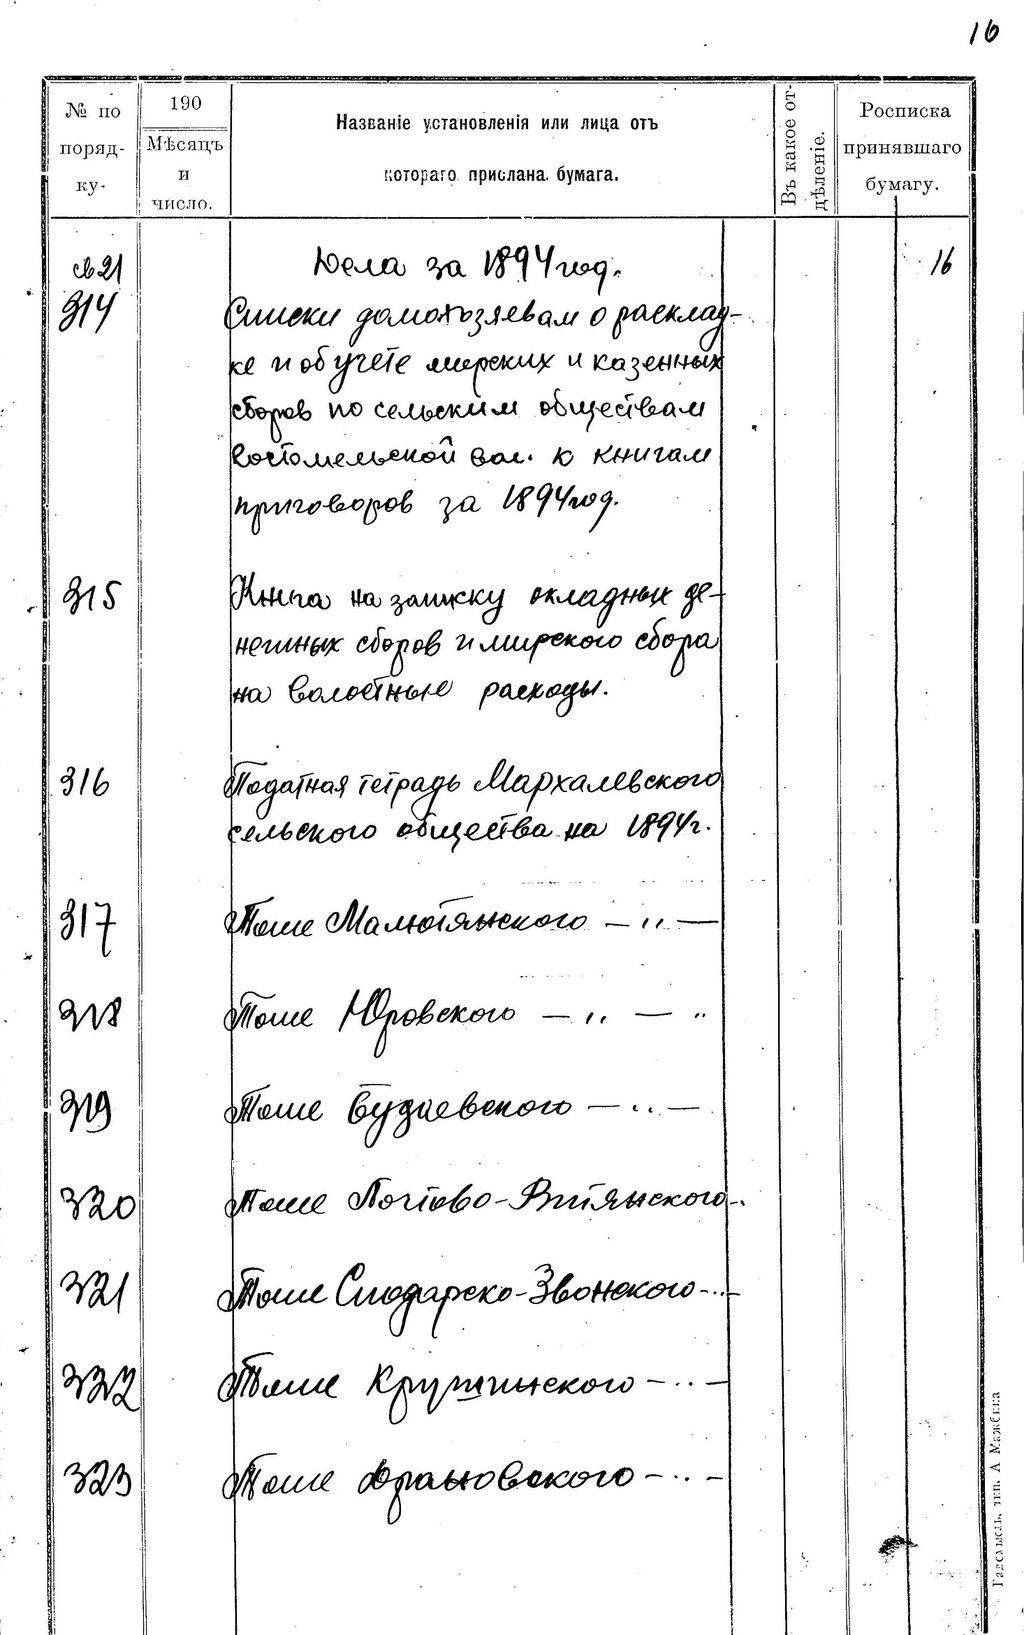 16
№ по поряд-ку.
190
Мѣсяцъ и число.
Названіе установленія или лица отъ
котораго прислана бумага.
Въ какое от-дѣленіе.
Росписка принявшаго бумагу.
св 21 Дела за 1894 год. 16
314 Списки домохозяевам о расклад-
ке и об учете мирских и казенных
сборов по сельским обществам
Гостомельской вол. к книгам
приговоров за 1894 год.
315 Книга на записку окладных де-
нежных сборов и мирского сбора
на волостные расходы.
316 Податная тетрадь Мархалевского
сельского общества на 1894 г.
317 Тоже Малютянского — " —
318 Тоже Юровского — " — "
319 Тоже Будаевского — " —
320 Тоже Почтово-Витянского - "
321 Тоже Сподарско-Звонского - " -
322 Тоже Кружинского - " -
323 Тоже - " -
тип. А Мажбица